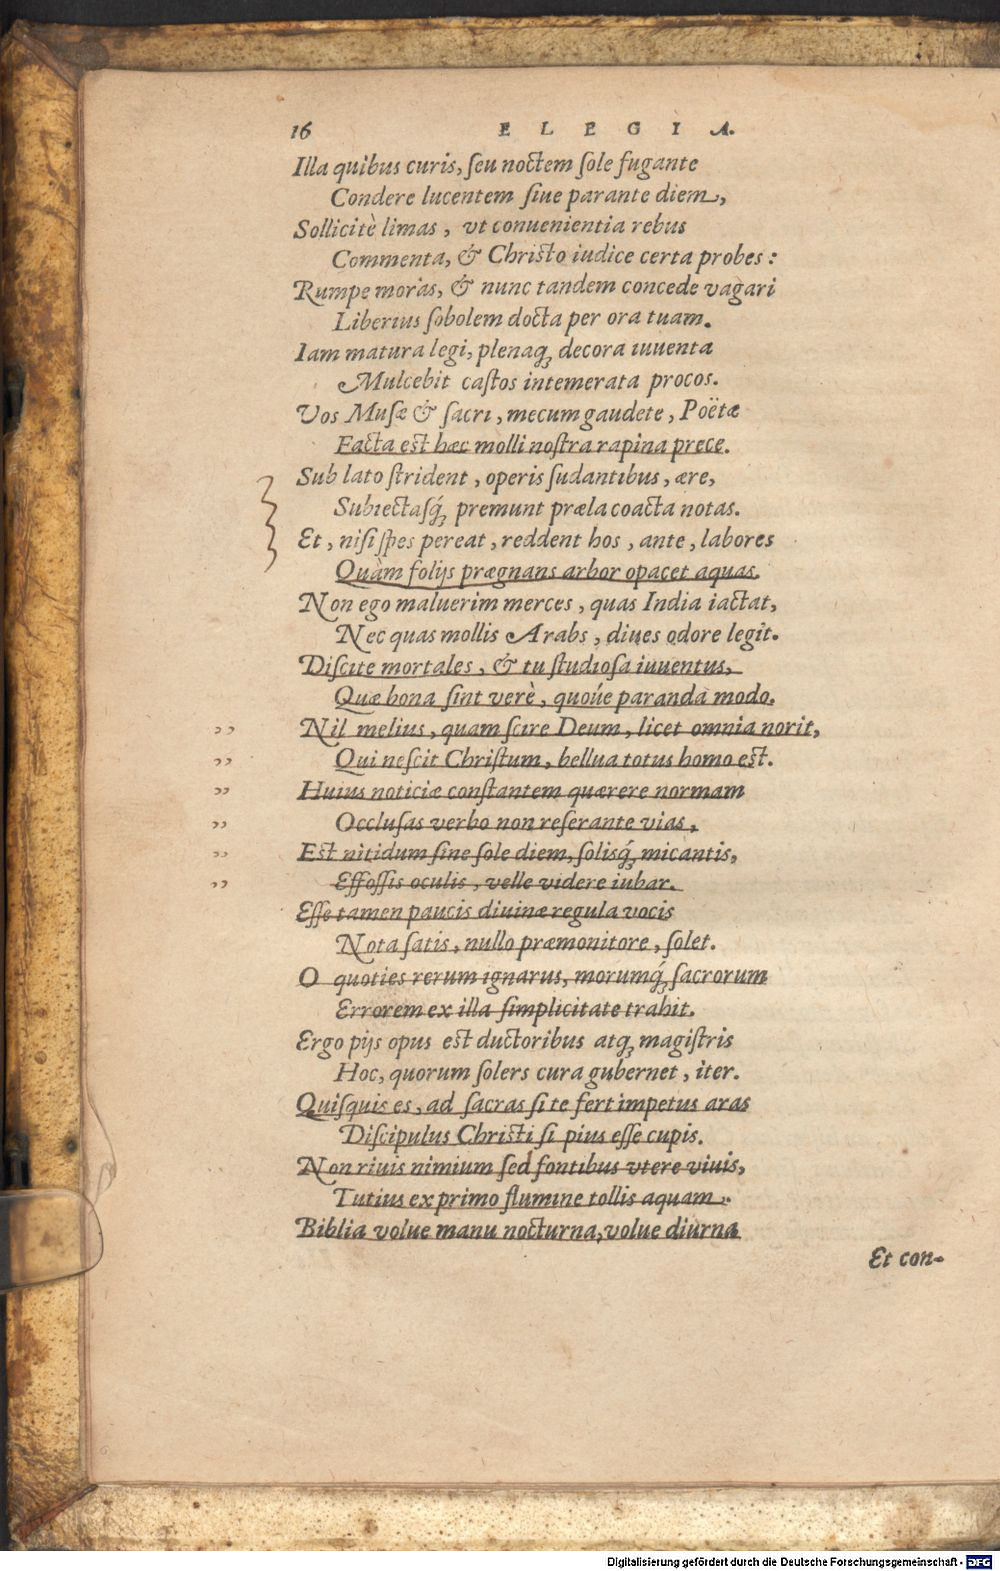 16 ELEGIA.
Illa quibus curis, ſeu noctem ſole fugante
Condere lucentem ſiue parante diem,
Sollicitè limas, vt conuenientia rebus
Commenta, & Chriſto iudice certa probes:
Rumpe moras, & nunc tandem concede vagari
Liberius ſobolem docta per ora tuam.
Iam matura legi, plenaq́; decora iuuenta
Mulcebit caſtos intemerata procos.
Vos Muſæ & ſacri, mecum gaudete, Poëtæ
Facta eſt hæc molli noſtra rapina prece.
Sub lato ſtrident, operis ſudantibus, ære,
Subiectaſq́; premunt præla coacta notas.
Et, niſi ſpes pereat, reddent hos, ante, labores
Quàm folijs prægnans arbor opacet aquas.
Non ego maluerim merces, quas India iactat,
Nec quas mollis Arabs, diues odore legit.
Diſcite mortales, & tu ſtudioſa iuuentus,
Quæ bona ſint verè, quoúe paranda modo.
,, Nil melius, quam ſcire Deum, licet omnia norit,
,, Qui neſcit Chriſtum, bellua totus homo eſt.
,, Huius noticiæ conſtantem quærere normam
,, Occluſas verbo non reſerante vias,
,, Eſt nitidum ſine ſole diem, ſolisq́; micantis,
,, Effoſſis oculis, velle videre iubar.
Eſſe tamen paucis diuinæ regula vocis
Nota ſatis, nullo præmonitore, ſolet.
O quoties rerum ignarus, morumq́; ſacrorum
Errorem ex illa ſimplicitate trahit.
Ergo pijs opus eſt ductoribus atq; magiſtris
Hoc, quorum ſolers cura gubernet, iter.
Quiſquis es, ad ſacras ſi te fert impetus aras
Diſcipulus Chriſti ſi pius eſſe cupis.
Non riuis nimium ſed fontibus vtere viuis,
Tutius ex primo flumine tollis aquam.
Biblia volue manu nocturna, volue diurna
Et con-
Digitalisierung gefördert durch die Deutsche Forschungsgemeinschaft - DFG